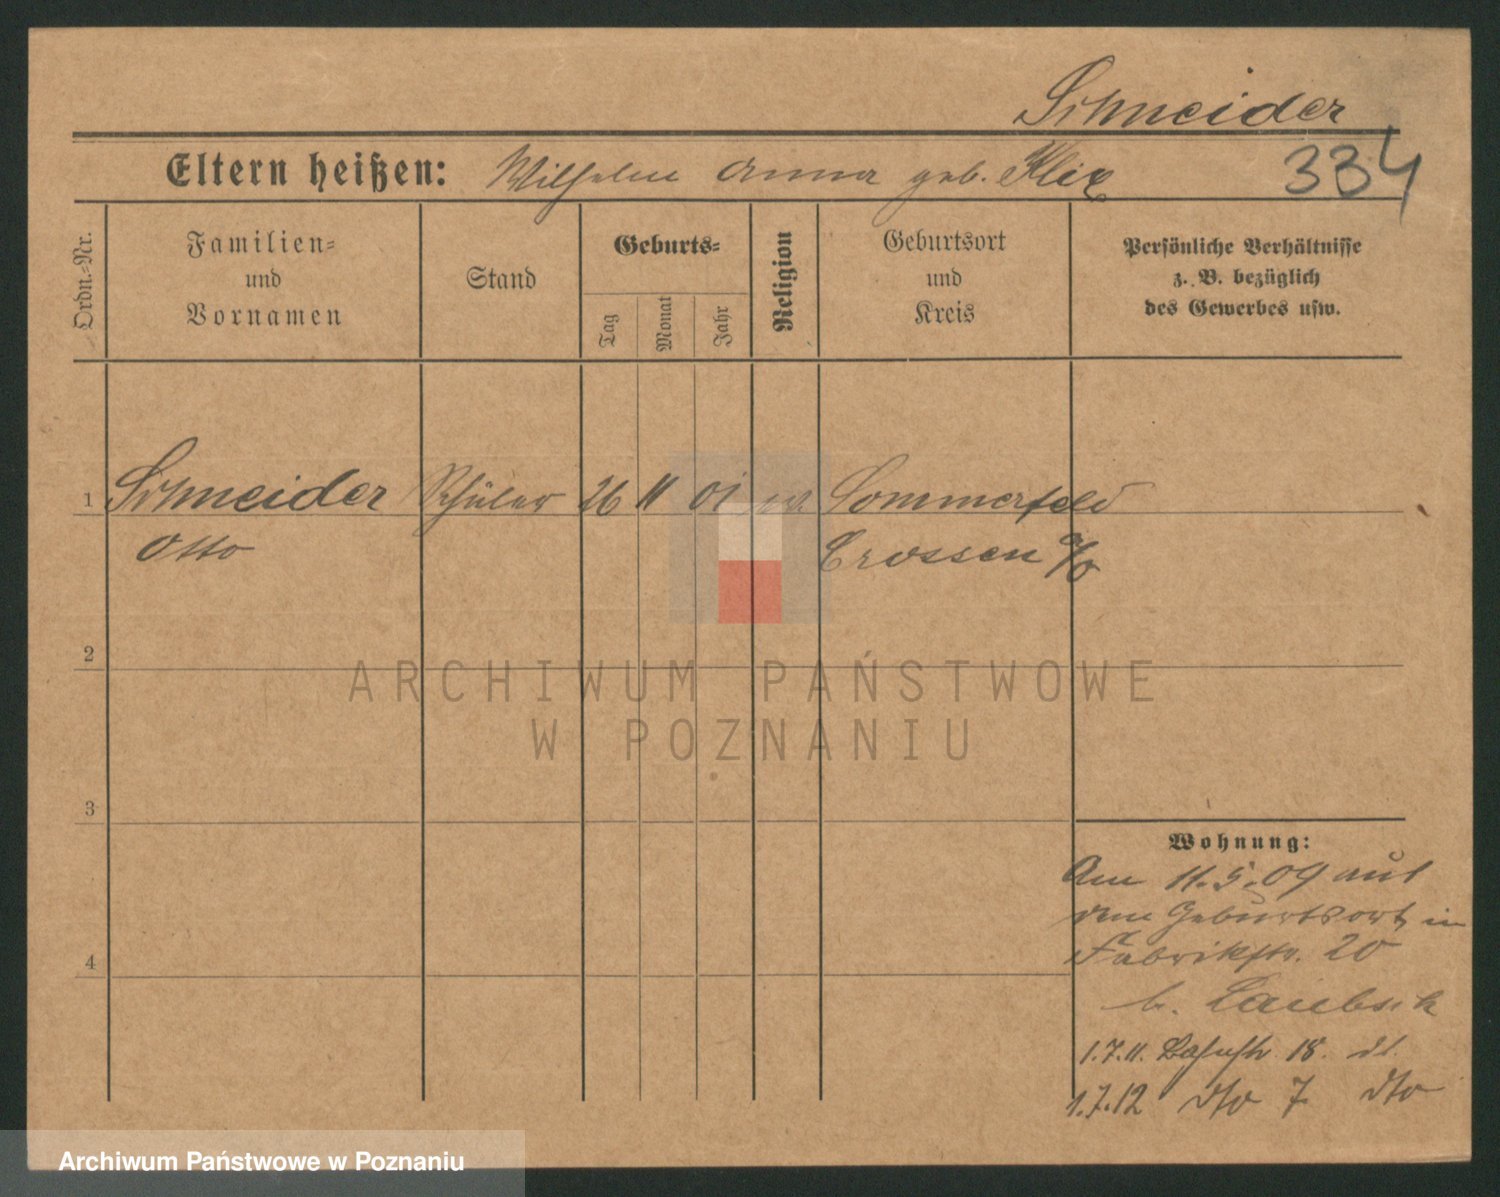 Schneider
334
Eltern heißen: Wilhelm Anna geb. Klix
Ordn.=Nr.
Familien=
und
Vornamen
Stand
Geburts=
Tag
Monat
Jahr
Religion
Geburtsort
und
Kreis
Persönliche Verhältnisse
z. B. bezüglich
des Gewerbes usw.
1 Schneider Schüler 26 11 01 Sommerfeld
Otto Crossen a/O
2
3
4
Wohnung:
Am 11.5.09 aus
dem Geburtsort in
Fabrikstr. 20
b.
1.7.11. Bahnstr 18.
1.7.12 dto 7 dto
ARCHIWUM PAŃSTWOWE
W POZNANIU
Archiwum Państwowe w Poznaniu